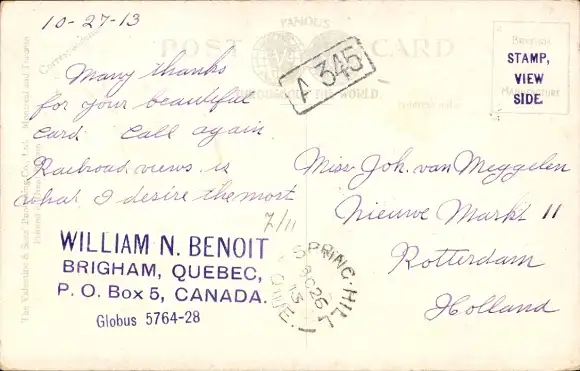 10-27-13
FAMOUS
POST CARD
THROUGHOUT THE WORLD.
A 345
BRITISH
STAMP,
VIEW
SIDE.
MANUFACTURE
Correspondence
Many thanks
for your beautiful
card. Call again.
Railroad views is
what I desire the most
7/11
WILLIAM N. BENOIT
BRIGHAM, QUEBEC,
P. O. Box 5, CANADA.
Globus 5764-28
SPRING HILL
OC 26
13
QUE.
Miss Joh. van Meggelen
Nieuwe Markt 11
Rotterdam
Holland
The Valentine & Sons' Publishing Co., Ltd. Montreal and Toronto
Printed in Great Britain